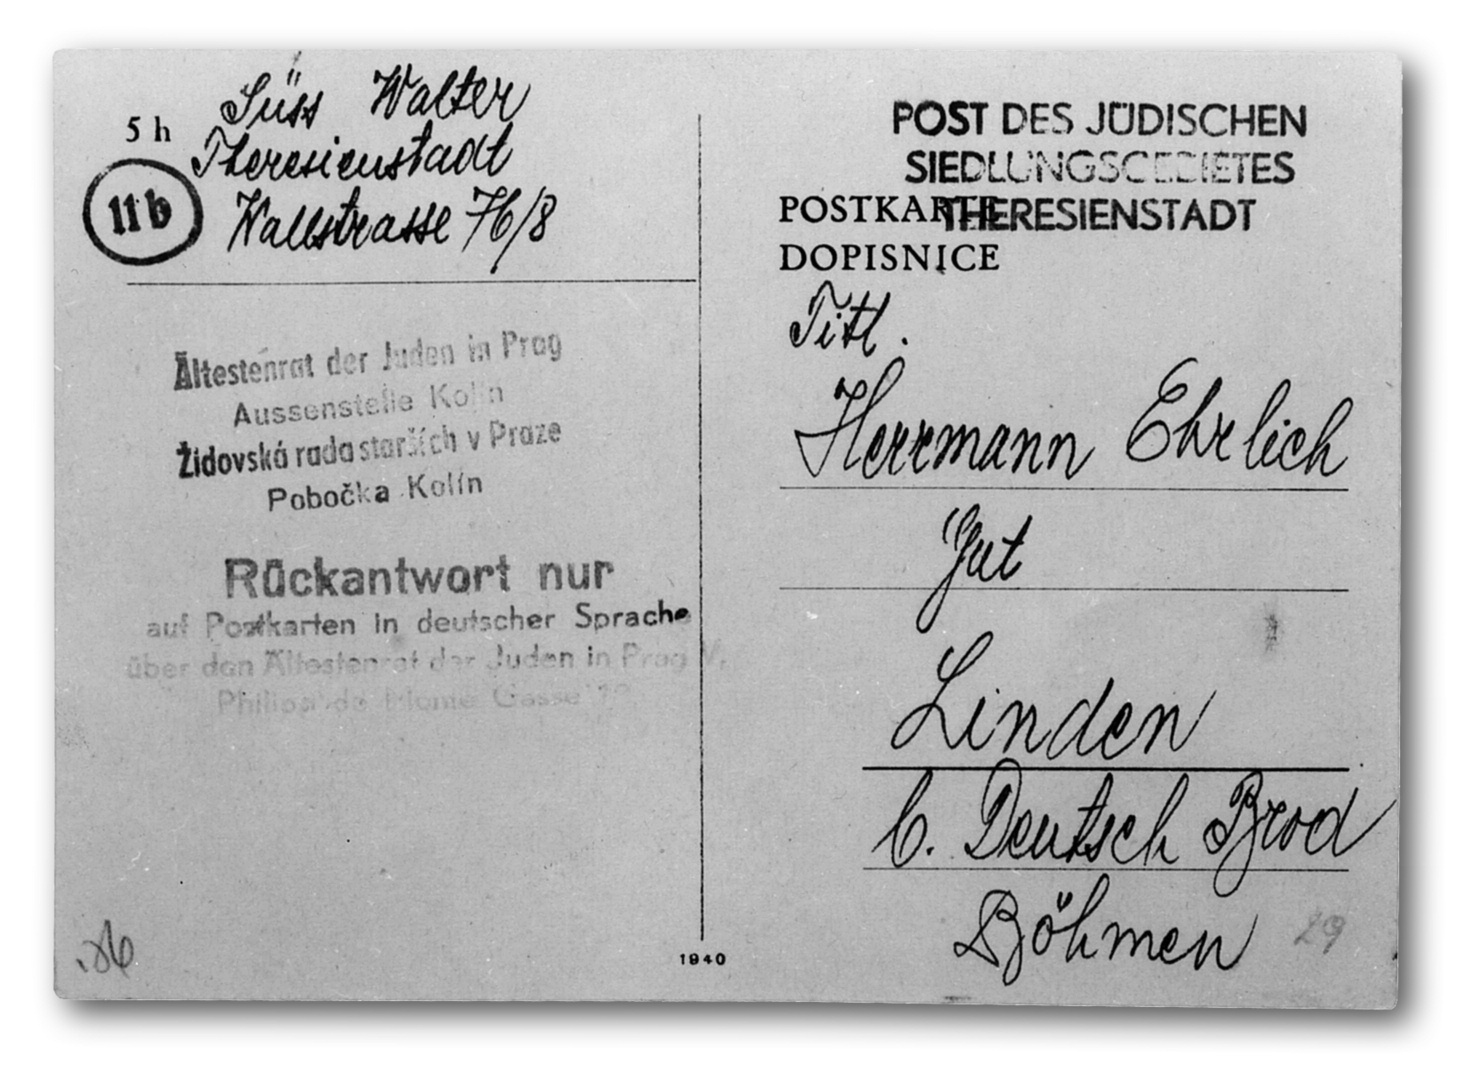 Süss Walter
5 h
Theresienstadt
11b
Wallstrasse 76/8
Ältestenrat der Juden in Prag
Aussenstelle Kolin
Židovská rada starších v Praze
Pobočka Kolín
Rückantwort nur
auf Postkarten in deutscher Sprache
über den Ältestenrat der Juden in Prag V,
Gasse
1940
POST DES JÜDISCHEN
SIEDLUNGSGEBIETES
THERESIENSTADT
POSTKARTE
DOPISNICE
Titl.
Herrmann Ehrlich
Gut
Linden
b. Deutsch Brod
Böhmen
29